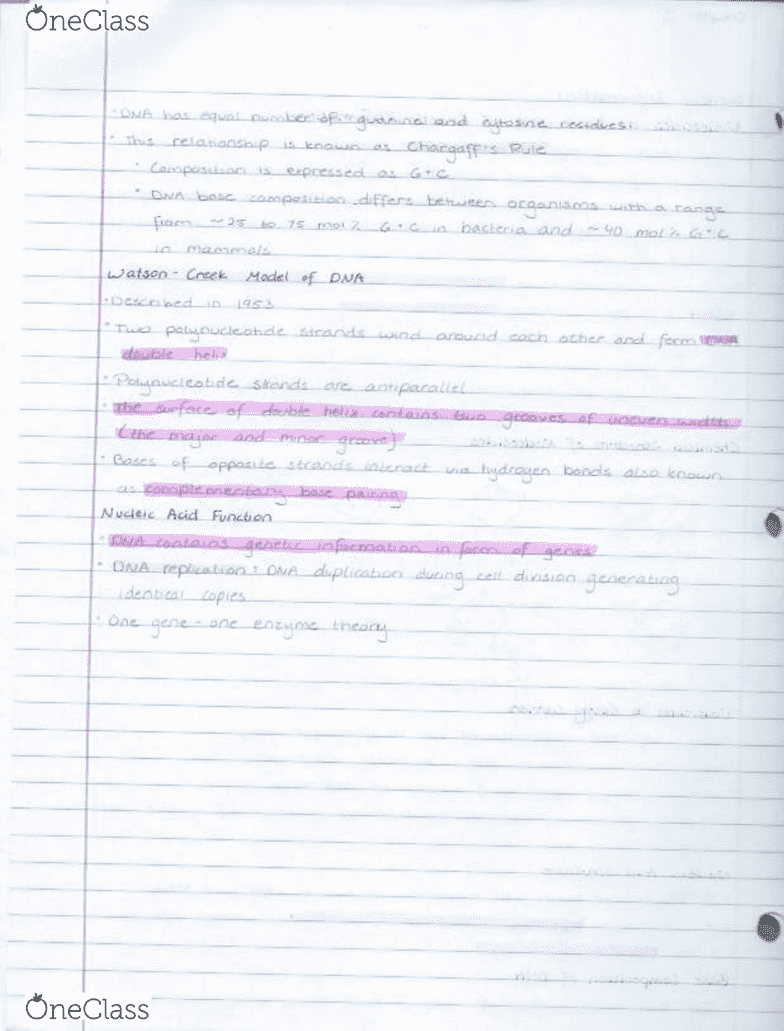 OneClass
· DNA has equal number of guanine and cytosine residues.
· This relationship is known as Chargaff's Rule
· Composition is expressed as G+C
· DNA base composition differs between organisms with a range
from ~25 to 75 mol% G+C in bacteria and ~40 mol% G+C
in mammals
Watson-Creek Model of DNA
· Described in 1953
· Two polynucleotide strands wind around each other and form
double helix
· Polynucleotide strands are antiparallel
· The surface of double helix contains two grooves of uneven widths
(the major and minor groove)
· Bases of opposite strands interact via hydrogen bonds also known
as complementary base pairing
Nucleic Acid Function
· DNA contains genetic information in form of genes
· DNA replication: DNA duplication during cell division generating
identical copies
· One gene - one enzyme theory
OneClass